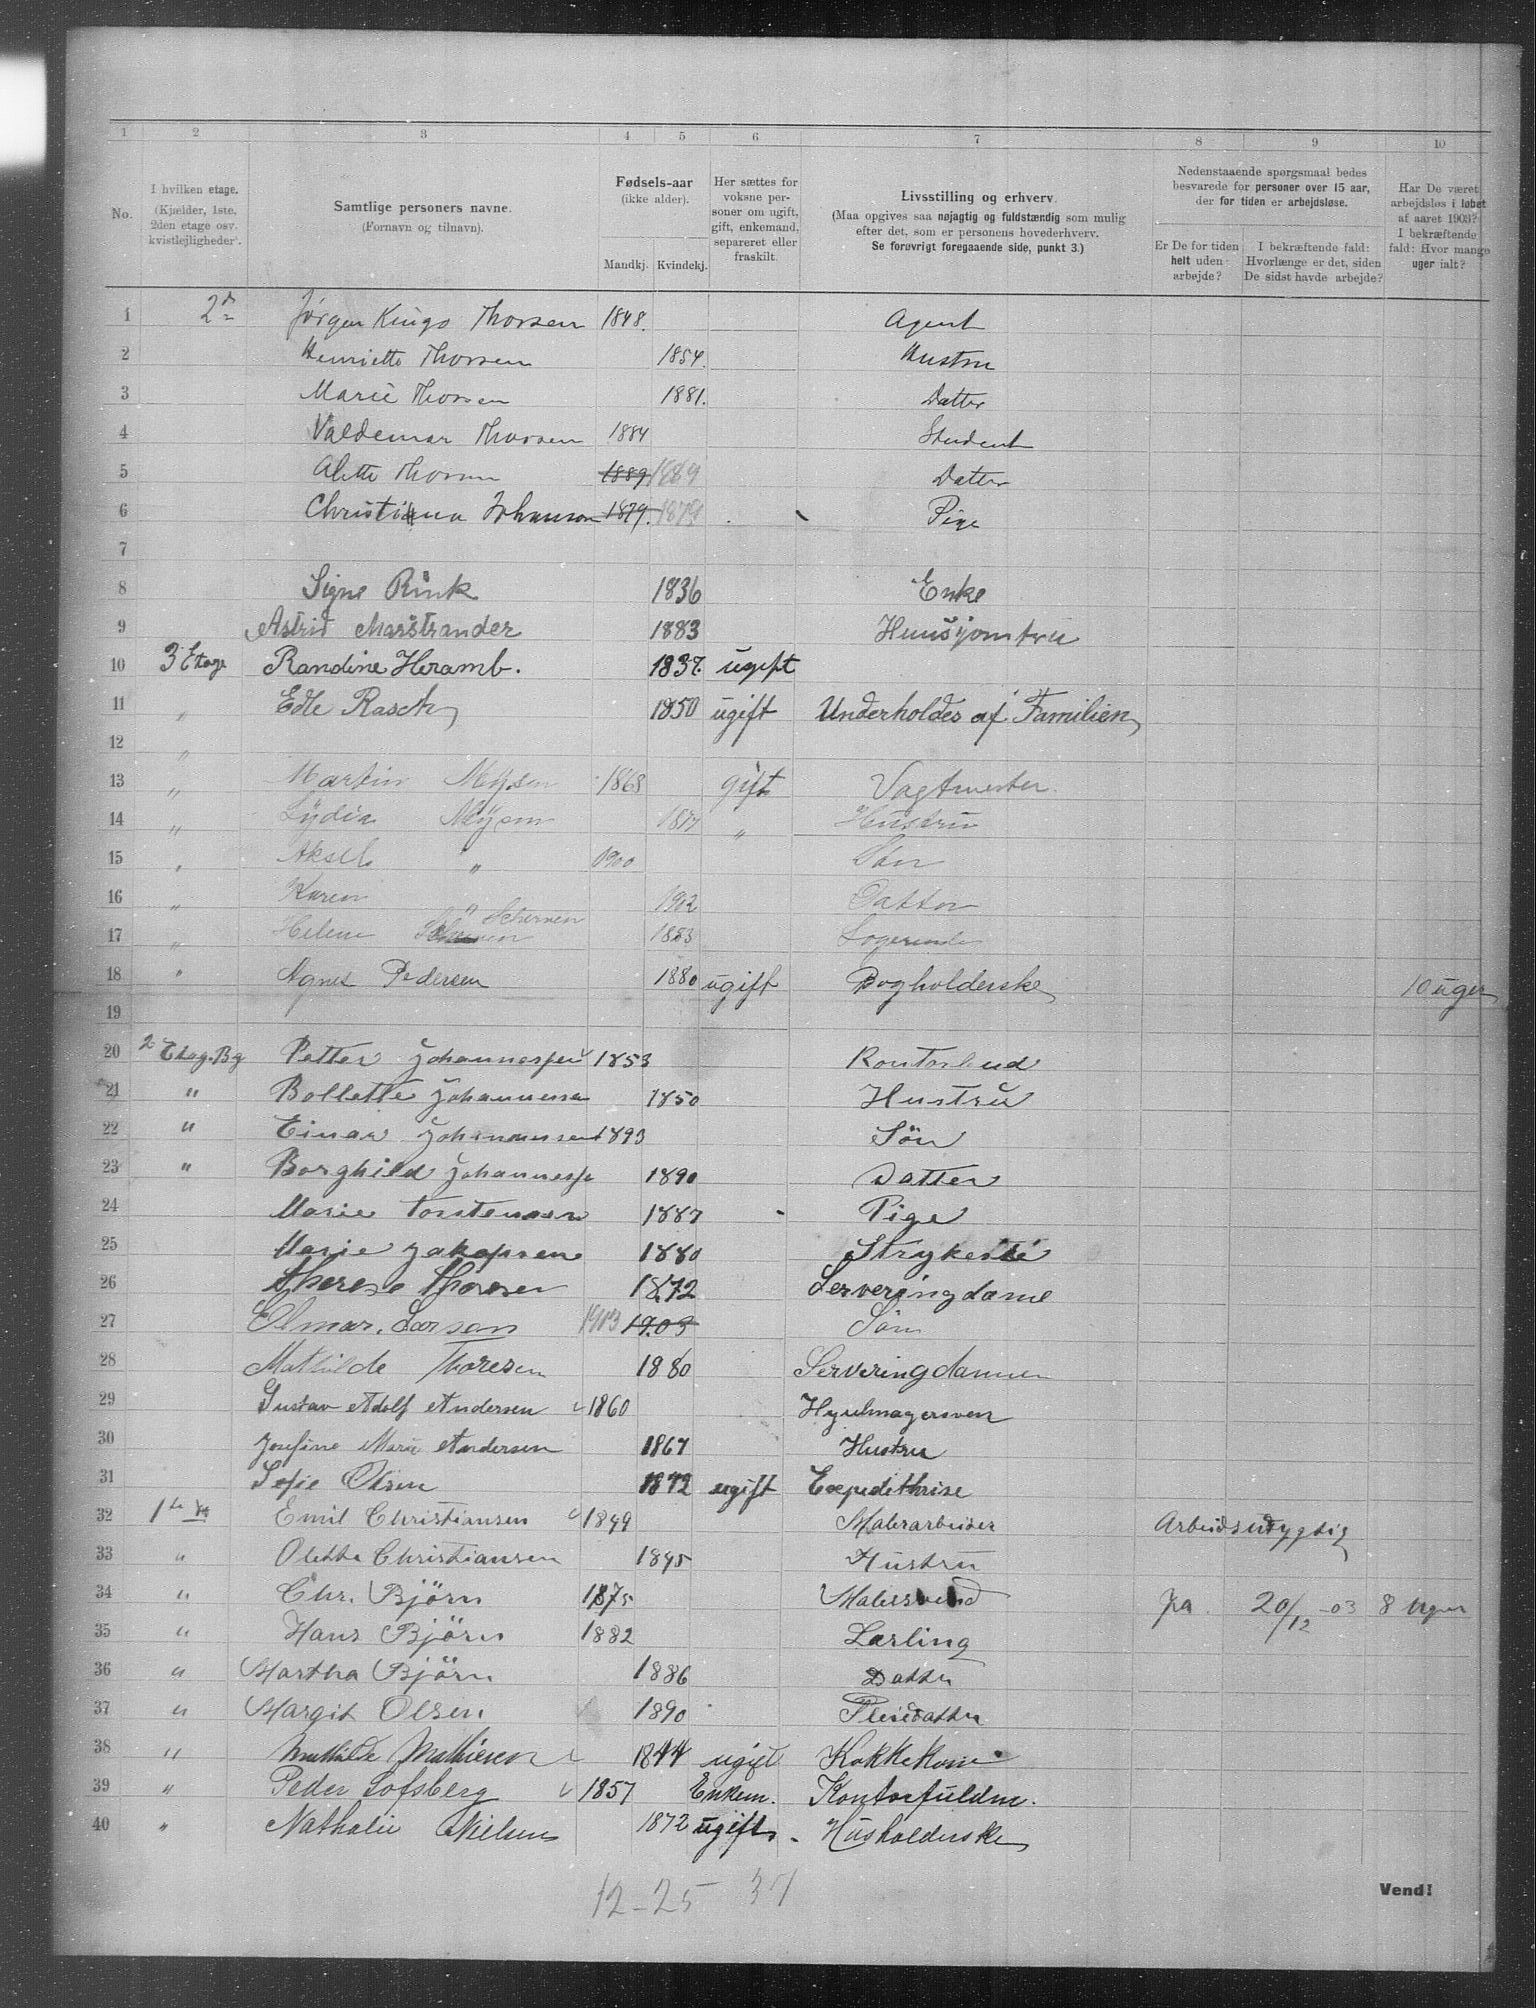 1 2 3 4 5 6 7 8 9 10
No.
I hvilken etage. (Kjælder, 1ste, 2den etage osv. kvistlejligheder).
Samtlige personers navne. (Fornavn og tilnavn).
Fødsels-aar (ikke alder). Mandkj. Kvindekj.
Her sættes for voksne personer om ugift, gift, enkemand, separeret eller fraskilt.
Livsstilling og erhverv. (Maa opgives saa nøjagtig og fuldstændig som mulig efter det, som er personens hovederhverv. Se forøvrigt foregaaende side, punkt 3.)
Nedenstaaende spørgsmaal bedes besvarede for personer over 15 aar, der for tiden er arbejdsløse.
Er De for tiden helt uden arbejde?
I bekræftende fald: Hvorlænge er det, siden De sidst havde arbejde?
Har De været arbejdsløs i løbet af aaret 1903? I bekræftende fald: Hvor mange uger ialt?
1 2 Jørgen Kingo Thorsen 1848. Agent
2 Henriette Thorsen 1854. Hustru
3 Marie Thorsen 1881. Datter
4 Valdemar Thorsen 1884 Student
5 Alette Thorsen 1889 1889 Datter
6 Christiana Johanson 1879. 1879 Pige
7
8 Signe Rink 1836 Enke
9 Astrid Marstrander 1883 Huusjomfru
10 3 Etage Randine Heramb. 1837. ugift
11 " Edle Rasch 1850 ugift Underholdes af Familien
12 "
13 " Martin 1868 gift Vagtmester
14 " Lydia 1877 " Hustru
15 " Aksel " 1900 Søn
16 " Karen " 1902 Datter
17 " Helene Scherven 1853 Logerende
18 " Agnes Pedersen 1880 ugift Bogholderske 10 uger
19
20 2 Etag. Bg Petter Johannessen 1853 Kontorbud
21 " Bollette Johannessen 1850 Hustru
22 " Einar Johannessen 1893 Søn
23 " Borghild Johannesse 1890 Datter
24 Marie Torstensen 1887 Pige
25 Marie Jakopsen 1880 Strykeske
26 Therese Thoresen 1872 Serveringdame
27 Elmar. Larsen 1903 1903 Søn
28 Mathilde Thoresen 1880 Serveringdamme
29 Gustav Adolf Andersen 1860 Hjulmagersven
30 Josefine Marie Andersen 1867 Hustru
31 Sofie Olsen 1872 ugift Expeditrise
32 1te Emil Christiansen 1849 Malerarbeider Arbeidsudygtig
33 " Oletta Christiansen 1845 Hustru
34 " Chr. Björn 1875 Malersvend Ja. 20/12 -03 8 uger
35 " Hans Björn 1882 Lærling
36 " Martha Björn 1886 Datter
37 " Margit Olsen 1890 Pleiedatter
38 " Mathilde Mathiesen 1844 ugift Kokkekone
39 " Peder Lofsberg 1857 Enkem. Kontorfuldm.
40 " Nathalie Nielsen 1872 ugift. Husholderske
12-25 37
Vend!